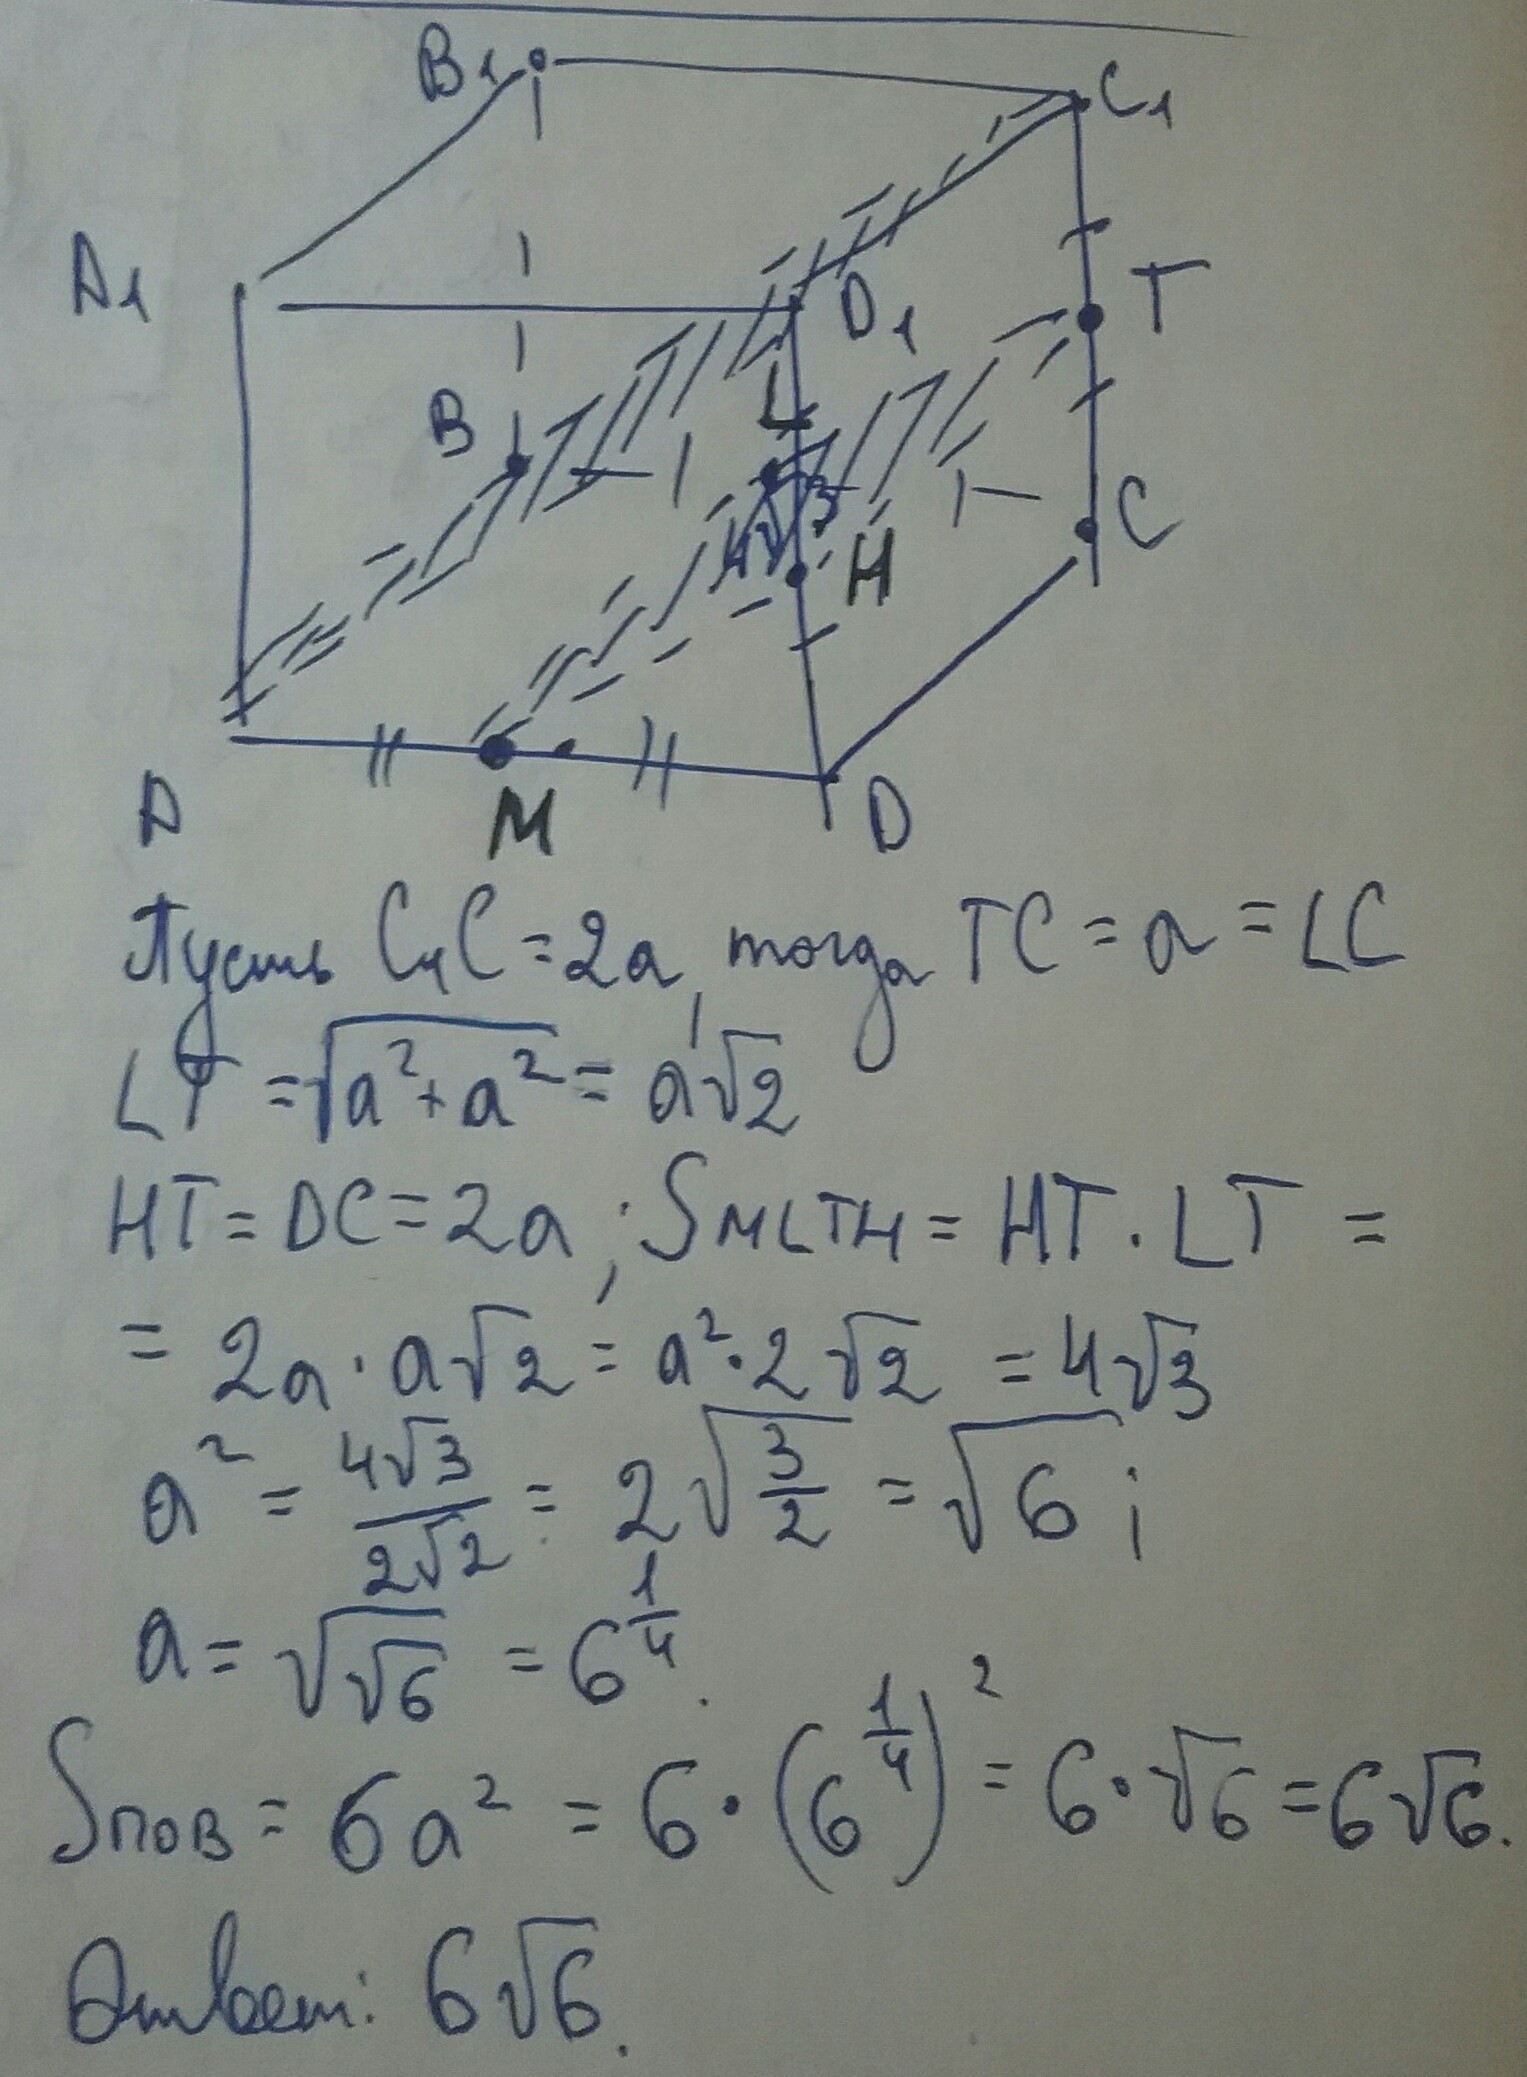 B₁
C₁
A₁
D₁
T
L
B
4√3
H
C
A
M
D
Пусть C₁C = 2a, тогда TC = a = LC
LT = √(a² + a²) = a√2
HT = DC = 2a; S MLTH = HT · LT =
= 2a · a√2 = a² · 2√2 = 4√3
a² = 4√3/2√2 = 2√(3/2) = √6;
a = √√6 = 6^(1/4).
Sпов = 6a² = 6 · (6^(1/4))² = 6 · √6 = 6√6.
Ответ: 6√6.